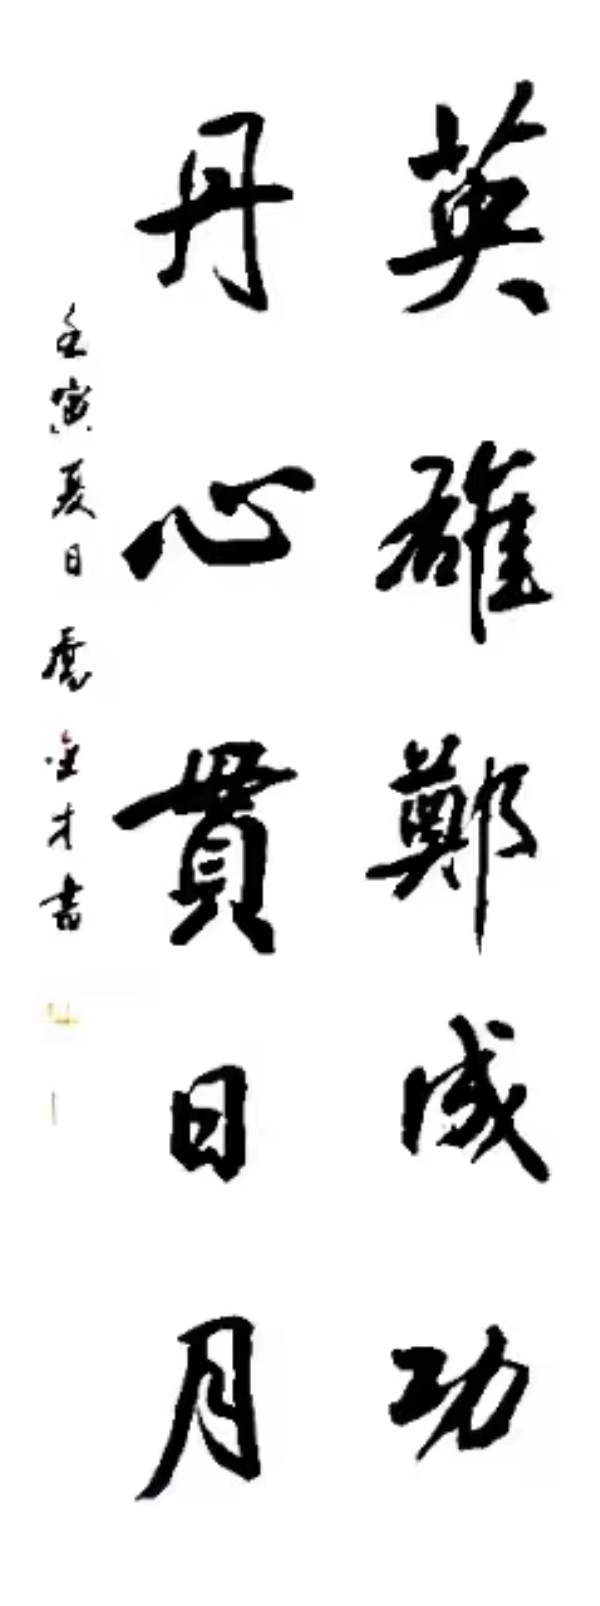 英雄鄭成功
丹心貫日月
壬寅夏日 金才書